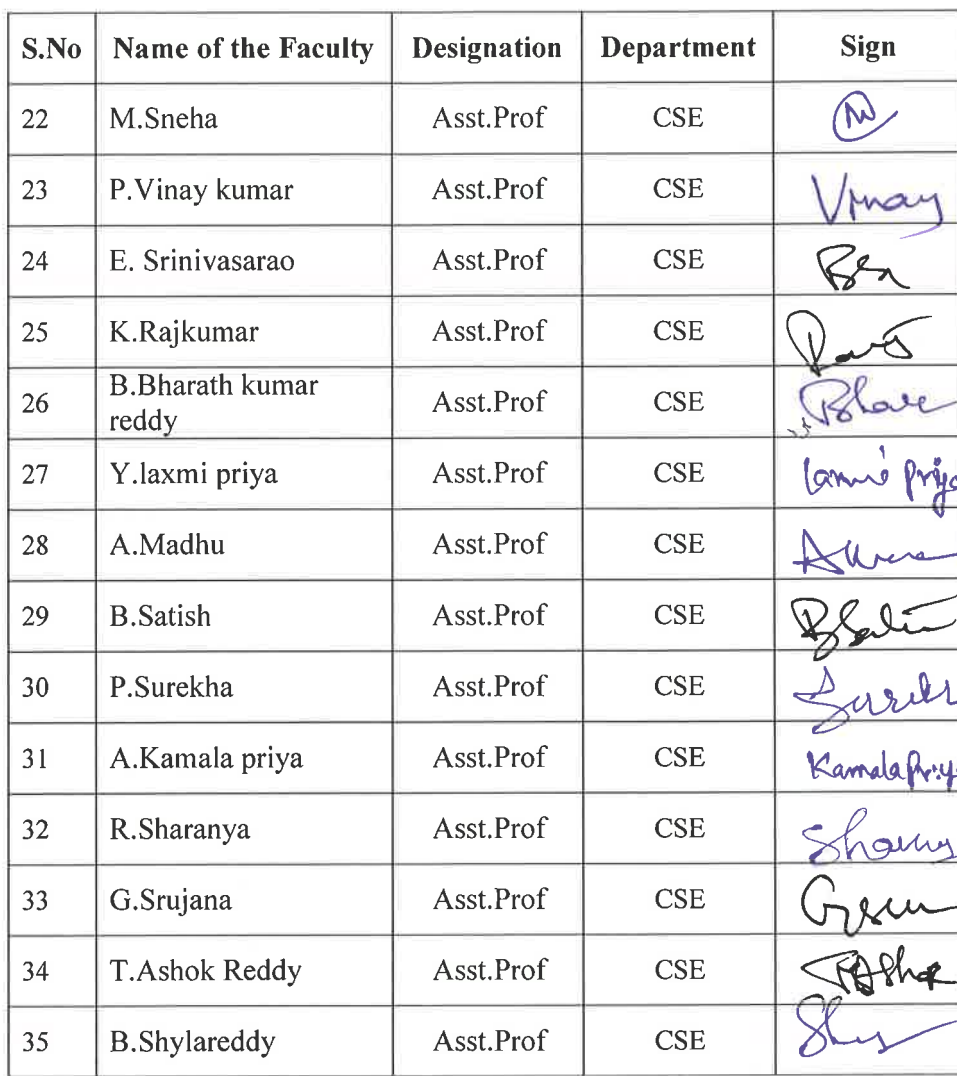 S.No Name of the Faculty Designation Department Sign
22 M.Sneha Asst.Prof CSE
23 P.Vinay kumar Asst.Prof CSE Vinay
24 E. Srinivasarao Asst.Prof CSE
25 K.Rajkumar Asst.Prof CSE
26 B.Bharath kumar
reddy Asst.Prof CSE
27 Y.laxmi priya Asst.Prof CSE laxmi priya
28 A.Madhu Asst.Prof CSE
29 B.Satish Asst.Prof CSE
30 P.Surekha Asst.Prof CSE
31 A.Kamala priya Asst.Prof CSE Kamala Priy
32 R.Sharanya Asst.Prof CSE
33 G.Srujana Asst.Prof CSE
34 T.Ashok Reddy Asst.Prof CSE
35 B.Shylareddy Asst.Prof CSE